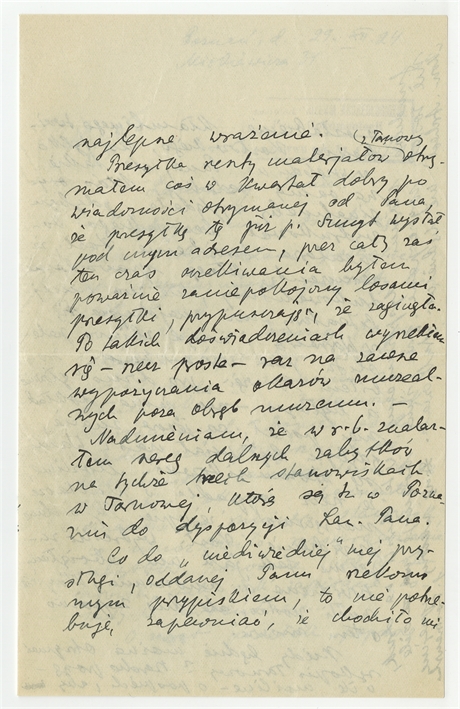 najlepsze wrażenie. (z Tarnowy)
Przesyłkę reszty materjałów otrzy-
małem coś w kwartał dobry po
wiadomości otrzymanej od Pana,
że przesyłkę tę już p. Smugt wysłał
pod mym adresem, przez cały zaś
ten czas oczekiwania byłem
poważnie zaniepokojony losami
przesyłki, przypuszczając, że zaginęła.
Po takich doświadczeniach wyrzekłem
się – rzecz prosta – raz na zawsze
wypożyczania okazów muzeal-
nych poza obręb muzeum. –
Nadmieniam, że w r. b. znalaz-
łem szereg dalszych zabytków
na tychże trzech stanowiskach
w Tarnowej, które są tu w Pozna-
niu do dyspozycji Szan. Pana.
Co do „niedźwiedziej" mej przy-
sługi, oddanej Panu rzekomo
mym przypiskiem, to nie potrze-
buję zapewniać, że chodziło mi